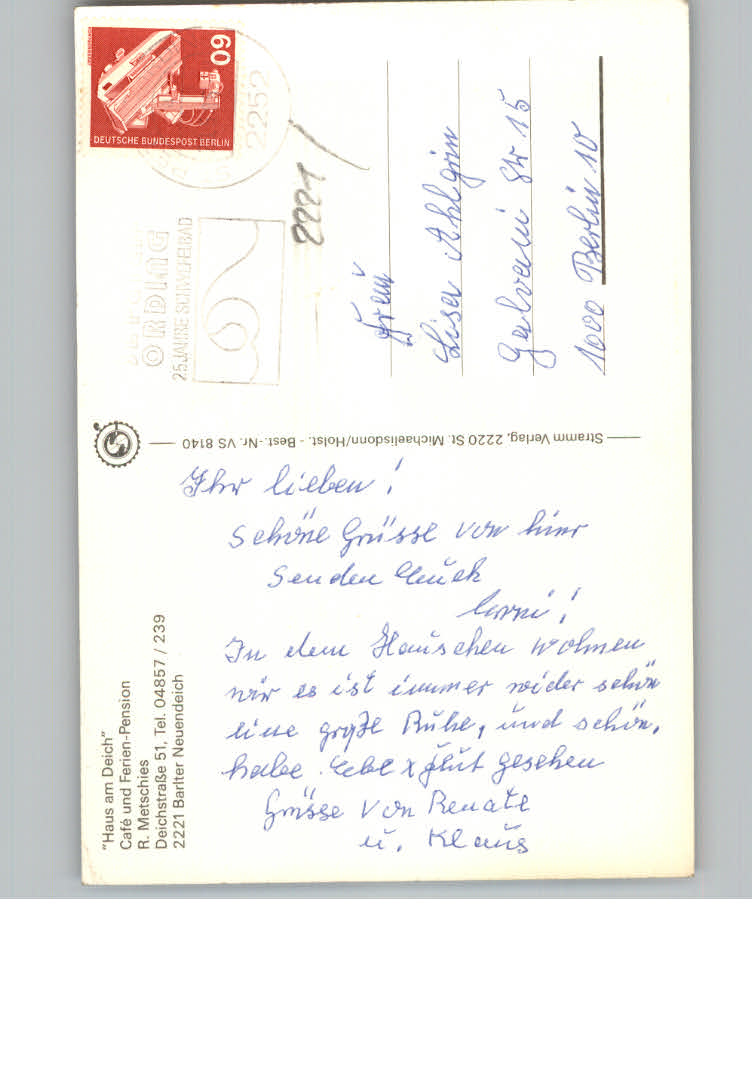 "Haus am Deich"
Café und Ferien-Pension
R. Metschies
Deichstraße 51, Tel. 04857 / 239
2221 Barlter Neuendeich
Ihr lieben!
schöne Grüsse von hier
senden Euch
In dem Häuschen wohnen
wir es ist immer wider schön
eine große Ruhe, und schön.
habe Ebbe x Flut gesehen
Grüsse von Renate
u. Klaus
Stramm Verlag, 2220 St. Michaelisdonn/Holst. - Best.-Nr. VS 8140
DEUTSCHE BUNDESPOST BERLIN
60
2252
ORDING
25 JAHRE SCHWEFELBAD
2221
Frau
Lisa Ahlgrim
Galvani Str 15
1000 Berlin 10